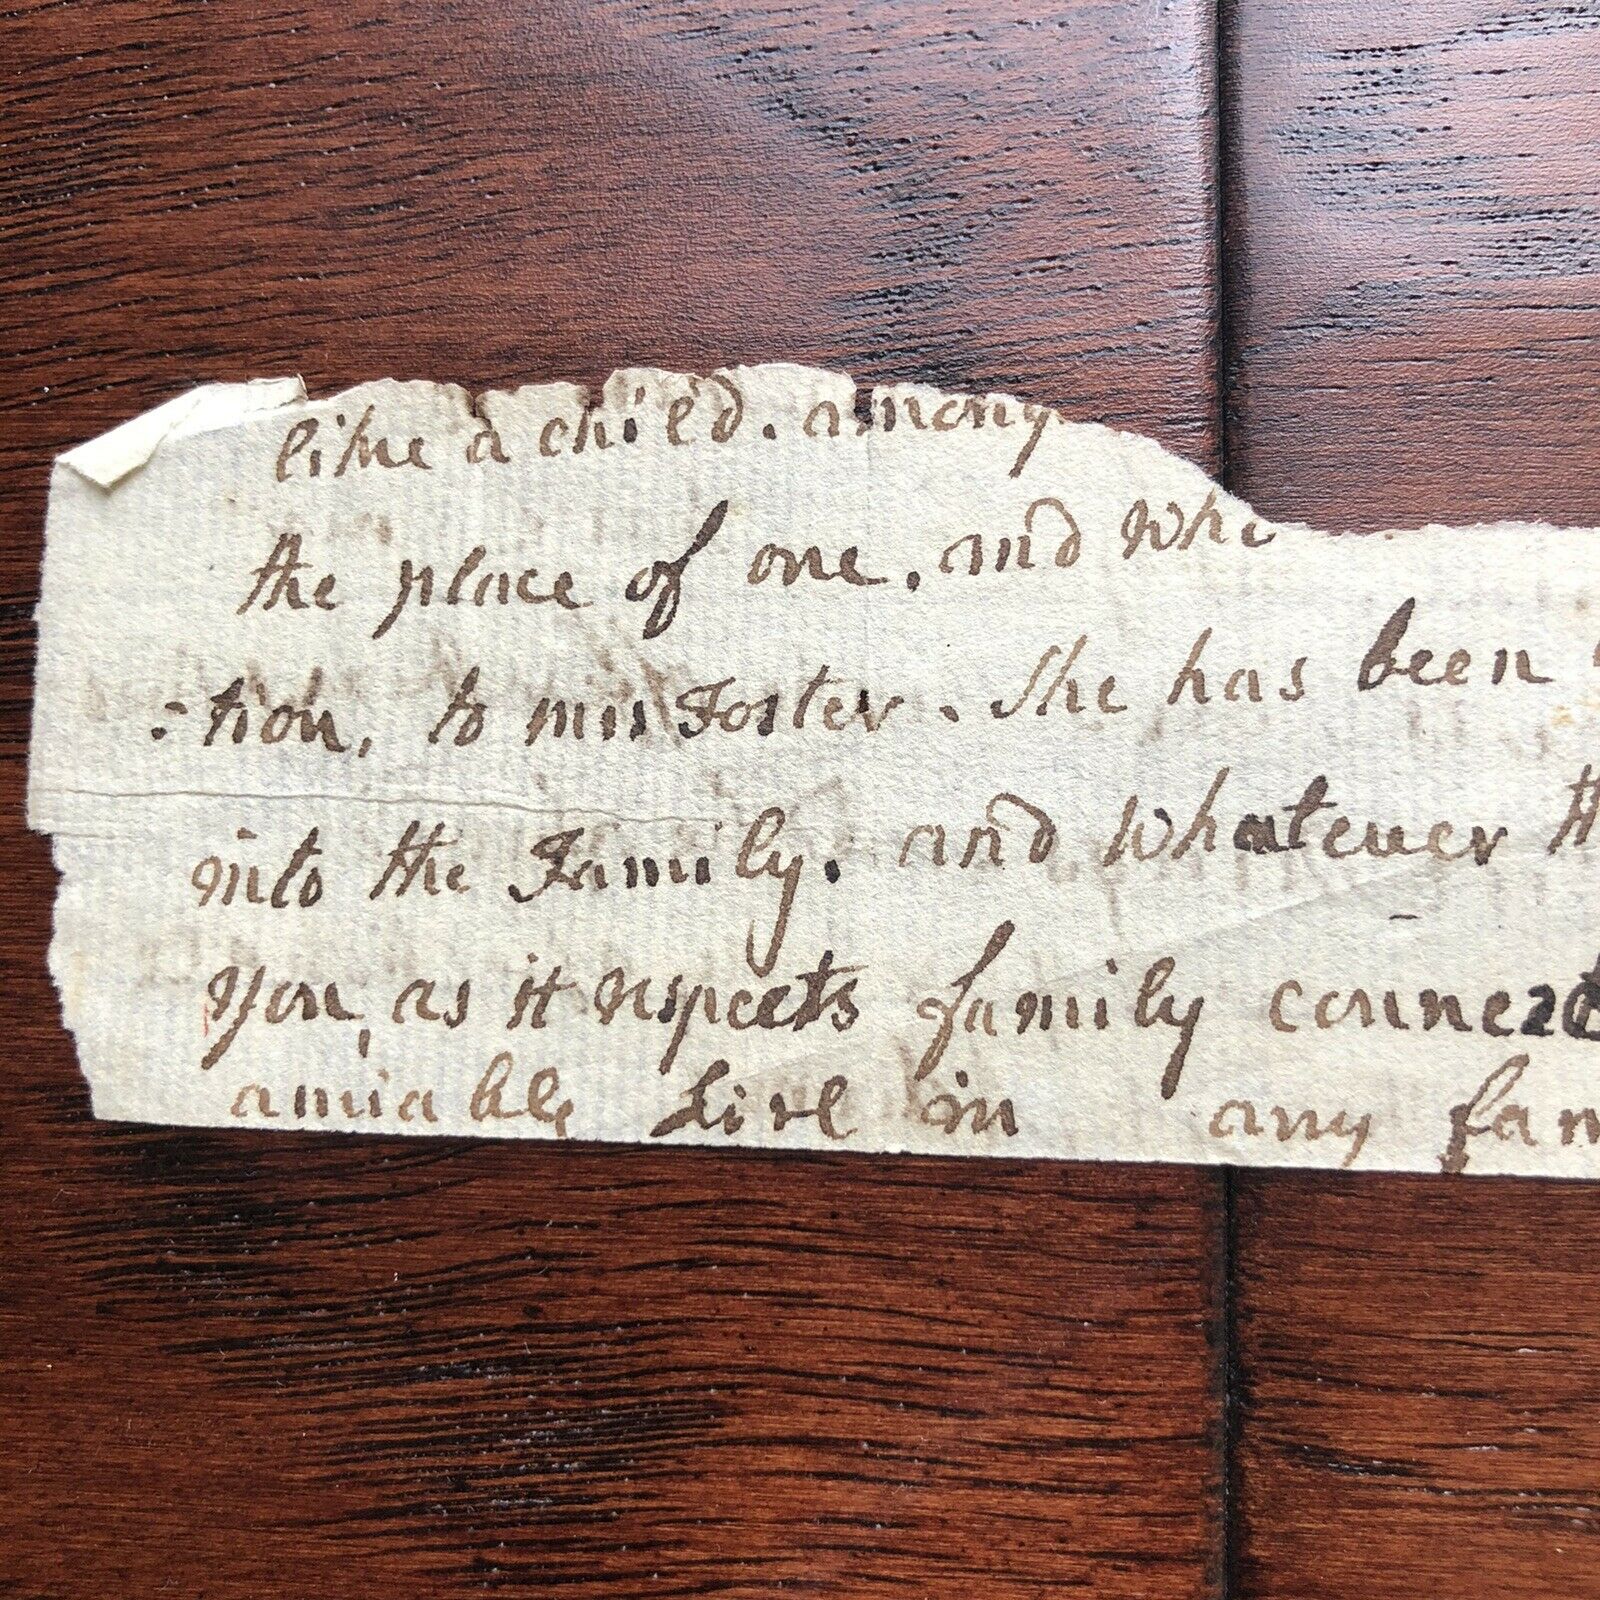 like a child. among
the place of one, and whe
:tion, to miss Foster. She has been
into the Family. and whatever th
you, as it respects family connect
amiable Girl in any fam